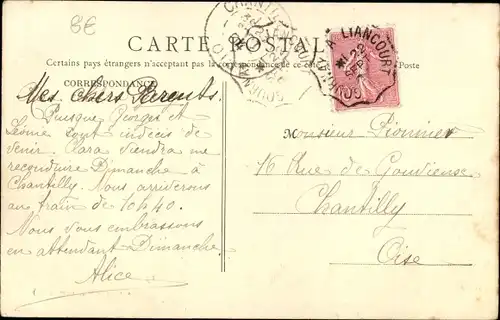 8E
CARTE POSTALE
Certains pays étrangers n'acceptant pas la correspondance de ce Poste
CORRESPONDANCE
Mes chers Parents.
Puisque Georges et
Léonie sont indécis de
venir. Clara viendra me
reconduire Dimanche à
Chantilly. Nous arriverons
au train de 10h40.
Nous vous embrassons
en attendant Dimanche
Alice
A LIANCOURT
22
SEPT
CHANTI
Monsieur Pionnier
16 Rue de Gouvieuse
Chantilly
Oise